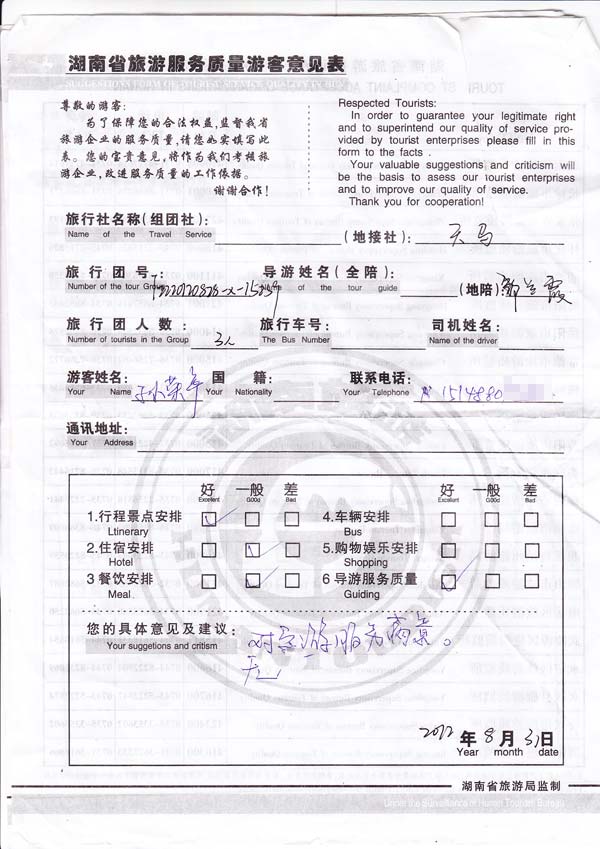 湖南省旅游服务质量游客意见表
尊敬的游客:
为了保障您的合法权益,监督我省
旅游企业的服务质量,请您如实填写此
表。您的宝贵意见,将作为我们考核旅
游企业,改进服务质量的工作依据。
谢谢合作!
Respected Tourists:
In order to guarantee your legitimate right
and to superintend our quality of service pro-
vided by tourist enterprises please fill in this
form to the facts .
Your valuable suggestions and criticism will
be the basis to asess our tourist enterprises
and to improve our quality of service.
Thank you for cooperation!
旅行社名称(组团社): (地接社): 天马
Name of the Travel Service
旅行团号: 导游姓名(全陪): (地陪)
Number of the tour Group of the tour guide
旅行团人数: 3人 旅行车号: 司机姓名:
Number of tourists in the Group The Bus Number Name of the driver
游客姓名: 国籍: 联系电话: 1514880
Your Name Your Nationality Your Telephone
通讯地址:
Your Address
好 一般 差 好 一般 差
Excelent GOOd Bad Excelent GOOd Bad
1.行程景点安排 ✓ □ □ 4.车辆安排 □ □ □
Ltinerary Bus
2.住宿安排 □ ✓ □ 5.购物娱乐安排 □ □ □
Hotel Shopping
3 餐饮安排 □ ✓ □ 6 导游服务质量 ✓ □ □
Meal Guiding
您的具体意见及建议: 对导游服务满意。
Your suggetions and critism 无
2012 年 8 月 31 日
Year month date
湖南省旅游局监制
Under the Surveillance of Hunan Tourism Bureau